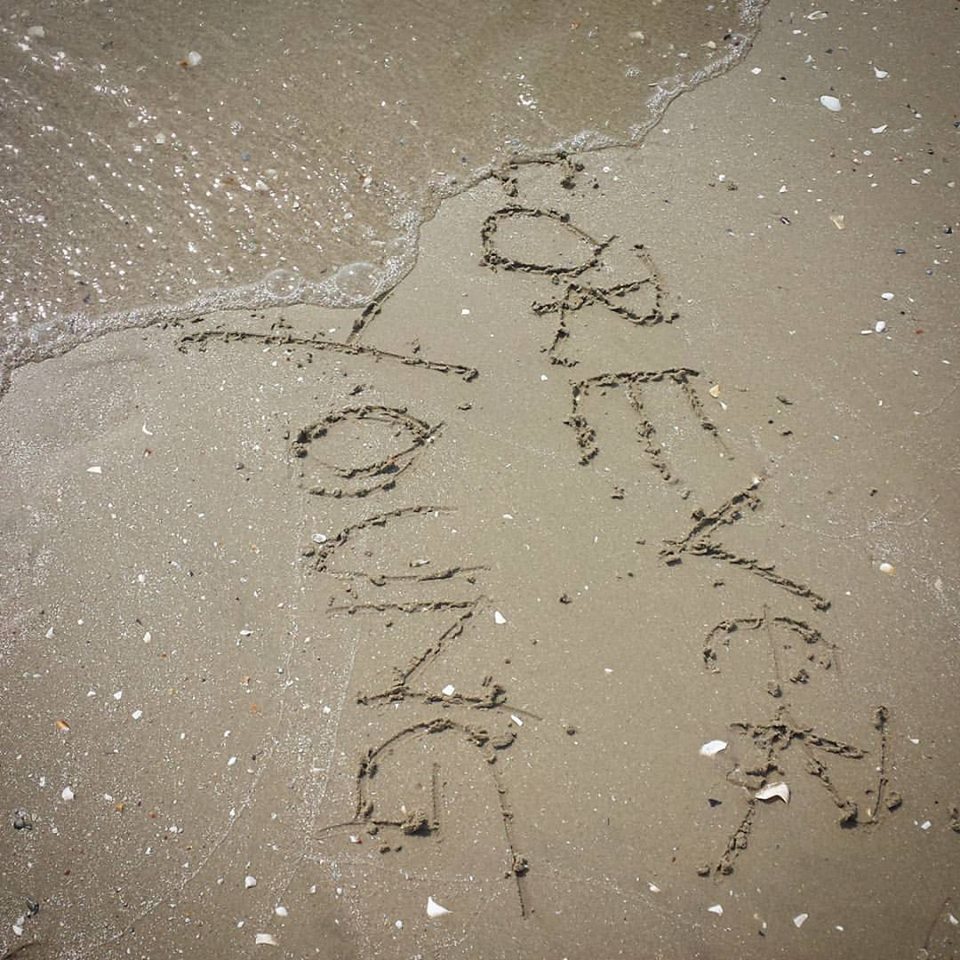 FOREVER
YOUNG